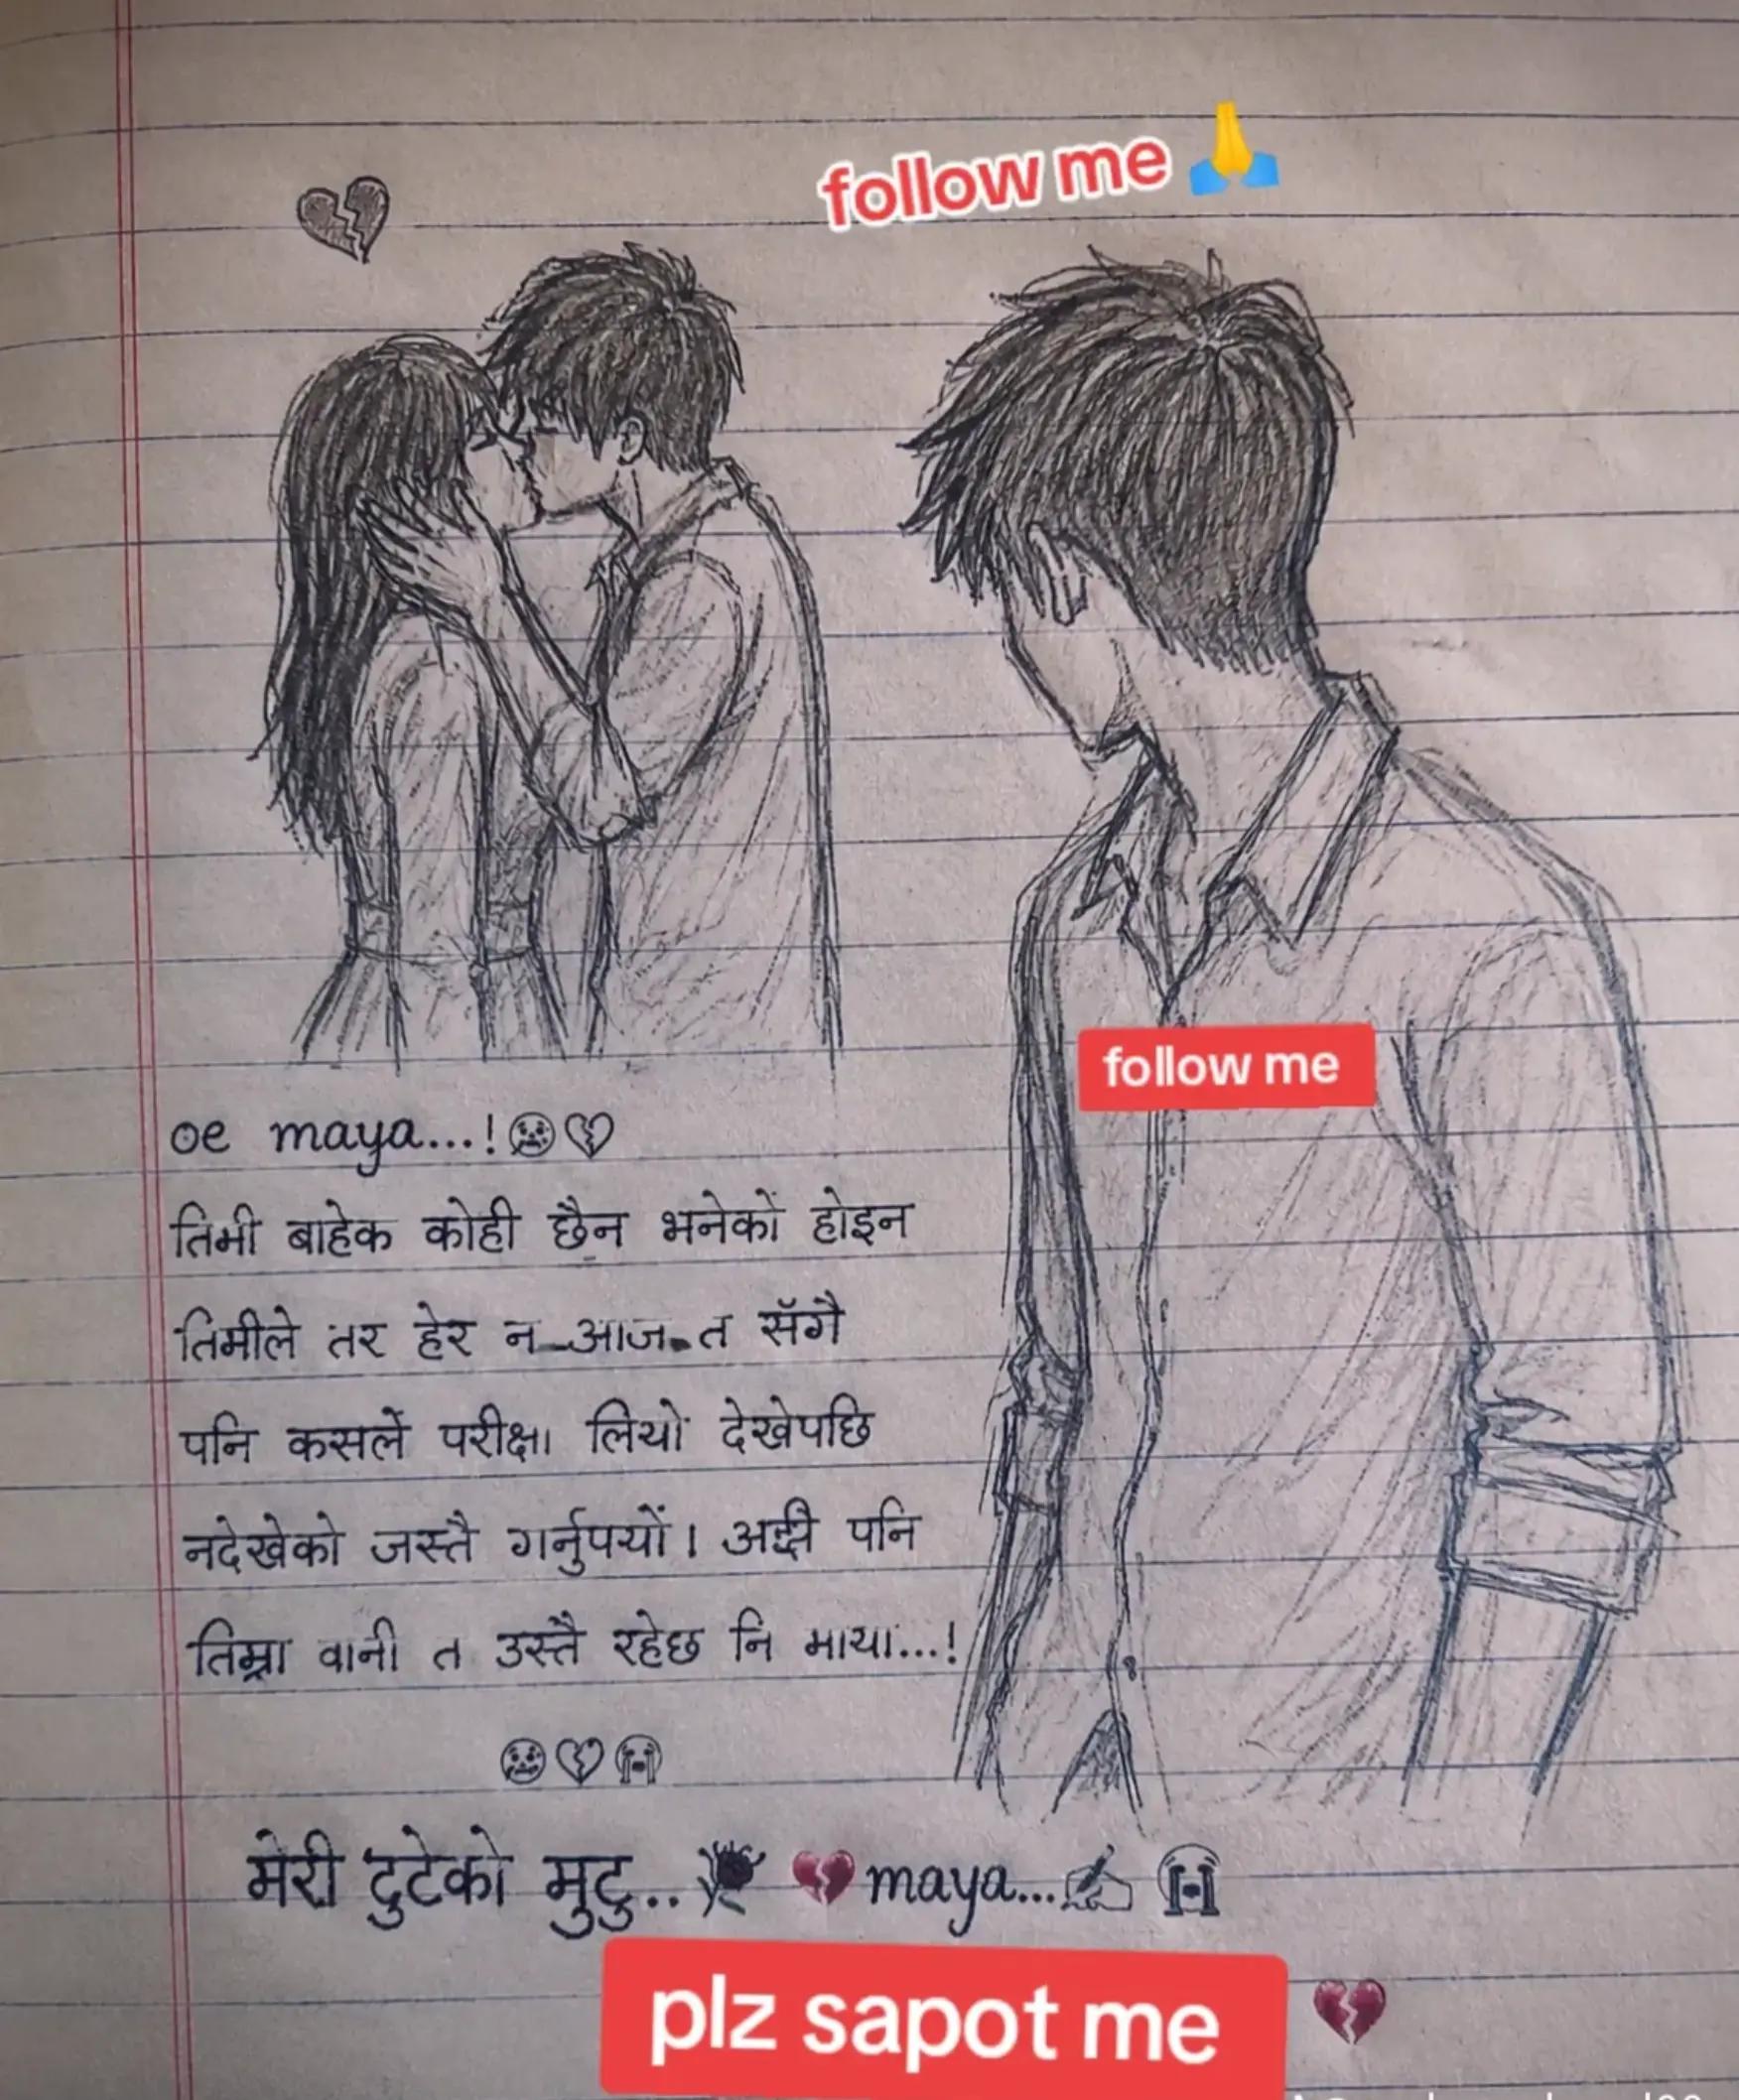 follow me 🙏
follow me
oe maya...!😢💔
तिमी बाहेक कोही छैन भनेकों होइन
तिमीले तर हेर न आज त सॅगै
पनि कसलें परीक्षा लियो देखेपछि
नदेखेको जस्तै गर्नुपर्यो । अझै पनि
तिम्रा वानी त उस्तै रहेछ नि माया...!
😢💔😭
मेरी टुटेको मुटु.. 💔 maya...✍ 😭
plz sapot me 💔